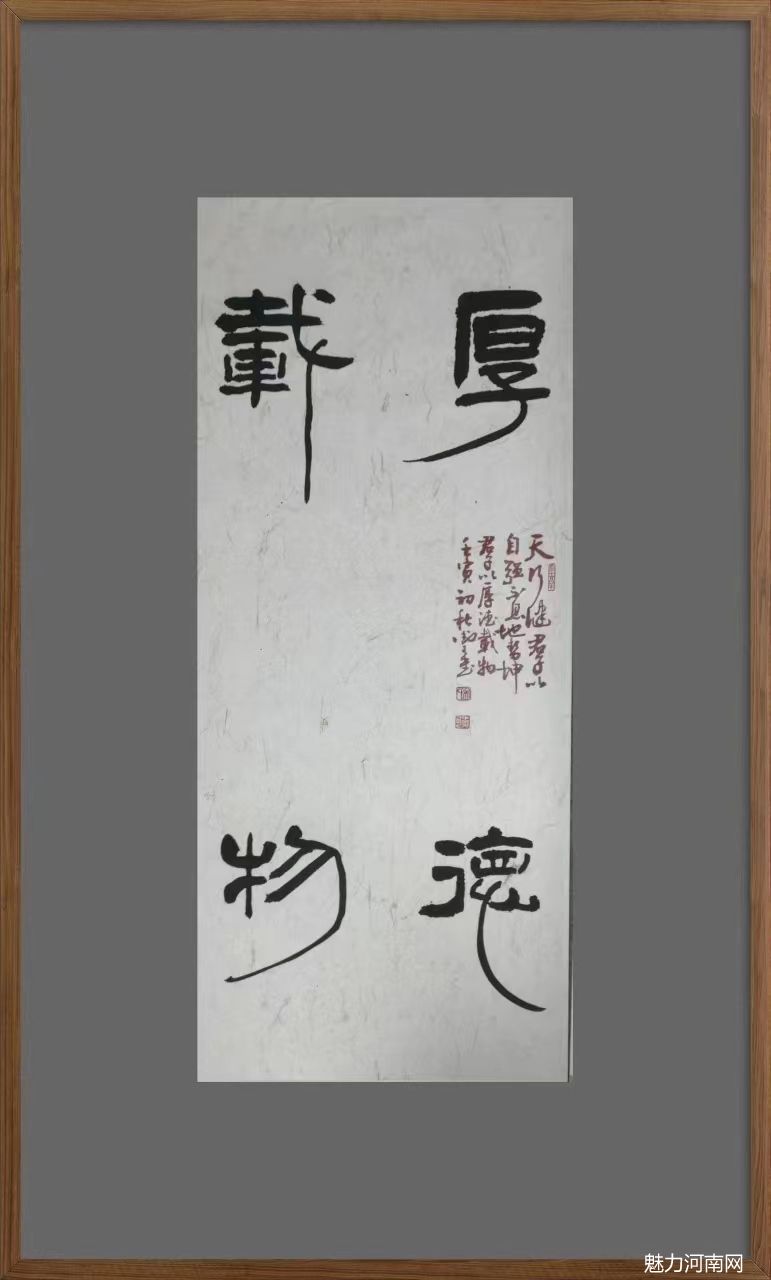 厚德
載物
天行健君子以
自强不息地势坤
君子以厚德載物
壬寅初秋
魅力河南网